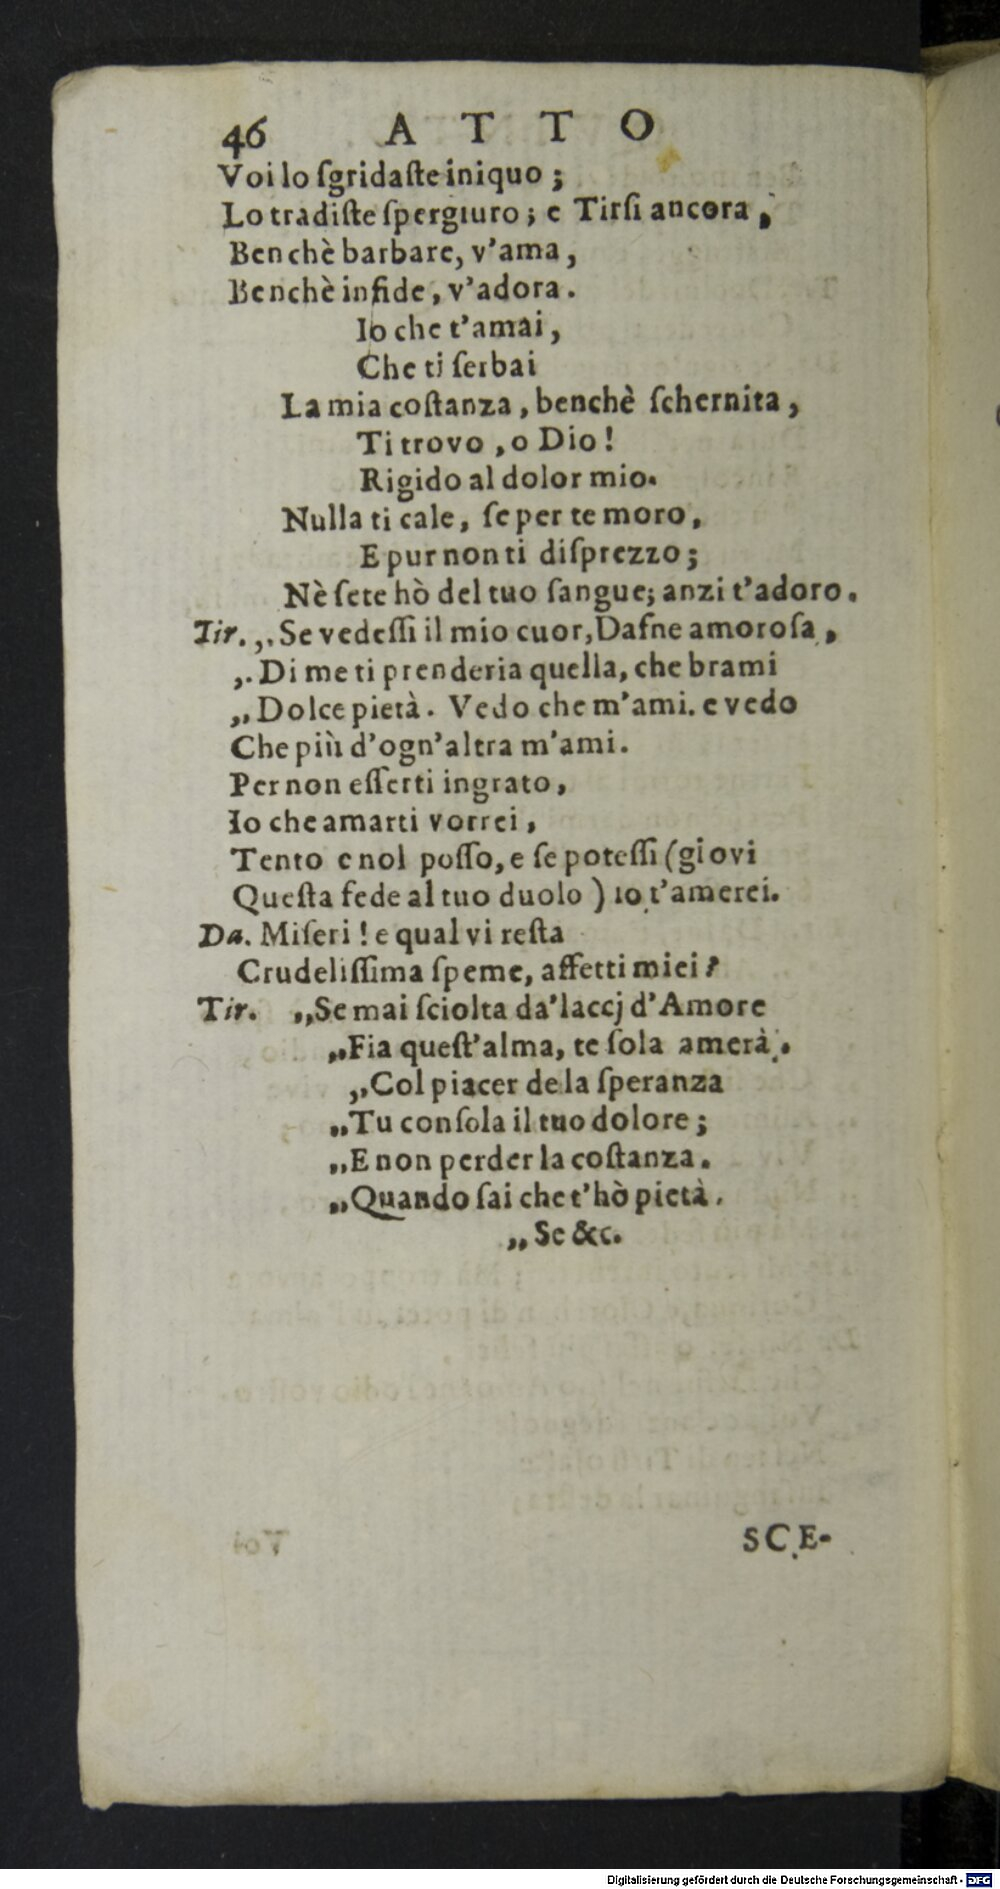 46 ATTO
Voi lo ſgridaſte iniquo ;
Lo tradiſte ſpergiuro ; e Tirſi ancora ,
Benchè barbare, v'ama ,
Benchè infide, v'adora .
Io che t'amai ,
Che ti ſerbai
La mia coſtanza , benchè ſchernita ,
Ti trovo , o Dio !
Rigido al dolor mio.
Nulla ti cale, ſe per te moro ,
E pur non ti diſprezzo ;
Nè ſete hò del tuo ſangue; anzi t'adoro .
Tir. ,, Se vedeſſi il mio cuor, Dafne amoroſa ,
,, Di me ti prenderia quella, che brami
,, Dolce pietà . Vedo che m'ami. e vedo
Che più d'ogn'altra m'ami .
Per non eſſerti ingrato ,
Io che amarti vorrei ,
Tento e nol poſſo, e ſe poteſſi (giovi
Queſta fede al tuo duolo ) io t'amerei.
Da. Miſeri ! e qual vi reſta
Crudeliſſima ſpeme, affetti miei ?
Tir. ,,Se mai ſciolta da'laccj d'Amore
,,Fia queſt'alma, te ſola amerà .
,,Col piacer de la ſperanza
,,Tu conſola il tuo dolore ;
,,E non perder la coſtanza .
,,Quando ſai che t'hò pietà .
,, Se &c.
SCE-
Digitalisierung gefördert durch die Deutsche Forschungsgemeinschaft - DFG